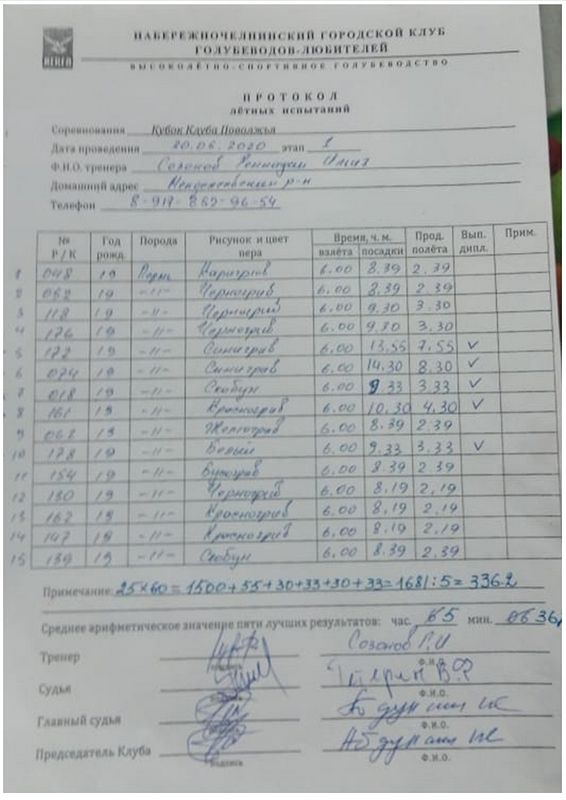 НАБЕРЕЖНОЧЕЛНИНСКИЙ ГОРОДСКОЙ КЛУБ
ГОЛУБЕВОДОВ-ЛЮБИТЕЛЕЙ
ВЫСОКОЛЁТНО-СПОРТИВНОЕ ГОЛУБЕВОДСТВО
ПРОТОКОЛ
лётных испытаний
Соревнования Кубок Клуба Поволжья
Дата проведения 20.06.2020 этап 1
Ф.И.О. тренера Созонов
Домашний адрес р-н
Телефон 8-917-
№ Р/К Год рожд. Порода Рисунок и цвет пера Время, ч. м. взлёта посадки Прод. полёта Вып. дипл. Прим.
1 048 19 6.00 8.39 2.39
2 19 -11- Черногрив 6.00 8.39 2.39
3 118 19 -11- Черногрив 6.00 9.30 3.30
4 176 19 -11- Черногрив 6.00 9.30 3.30
5 172 19 -11- Синигрив 6.00 13.55 7.55 V
6 074 19 -11- Синигрив 6.00 14.30 8.30 V
7 018 19 -11- Скобун 6.00 9.33 3.33 V
8 161 19 -11- Красногрив 6.00 10.30 4.30 V
9 19 -11- Желтогрив 6.00 8.39 2.39
10 178 19 -11- Белый 6.00 9.33 3.33 V
11 154 19 -11- 6.00 8.39 2.39
12 130 19 -11- Черногрив 6.00 8.19 2.19
13 162 19 -11- Красногрив 6.00 8.19 2.19
14 147 19 -11- Красногрив 6.00 8.19 2.19
15 139 19 -11- Скобун 6.00 8.39 2.39
Примечание: 25×60=1500+55+30+33+30+33=1681:5=336.2
Среднее арифметическое значение пяти лучших результатов: час. мин.
Тренер Созонов Р.И
подпись Ф.И.О.
Судья В.Ф
подпись Ф.И.О.
Главный судья
подпись Ф.И.О.
Председатель Клуба
подпись Ф.И.О.